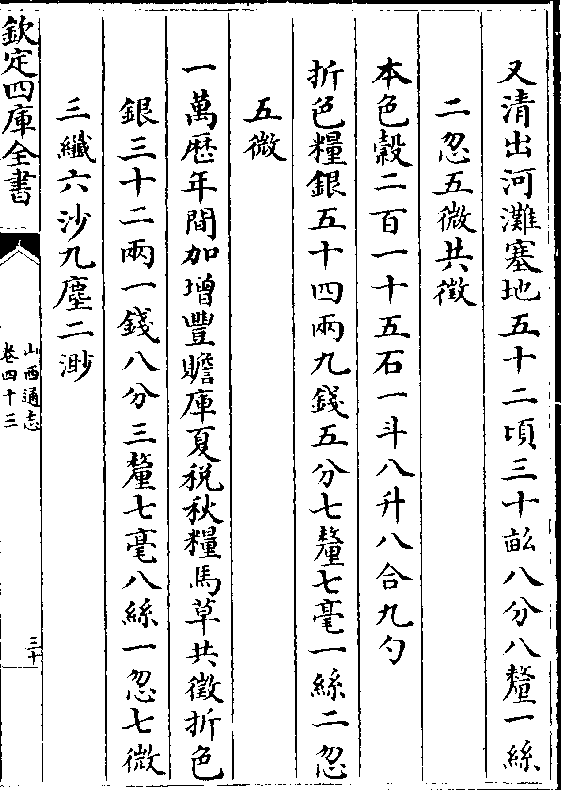 又清出河灘塞地五十二頃三十畝八分八釐一絲
二忽五微共徵
本色穀二百一十五石一斗八升八合九勺
折色糧銀五十四兩九錢五分七釐七毫一絲二忽
五微
一萬歷年間加增豐贍庫夏稅秋糧馬草共徵折色
銀三十二兩一錢八分三釐七毫八絲一忽七微
三纖六沙九塵二渺
欽定四庫全書
山西通志
卷四十三
三十